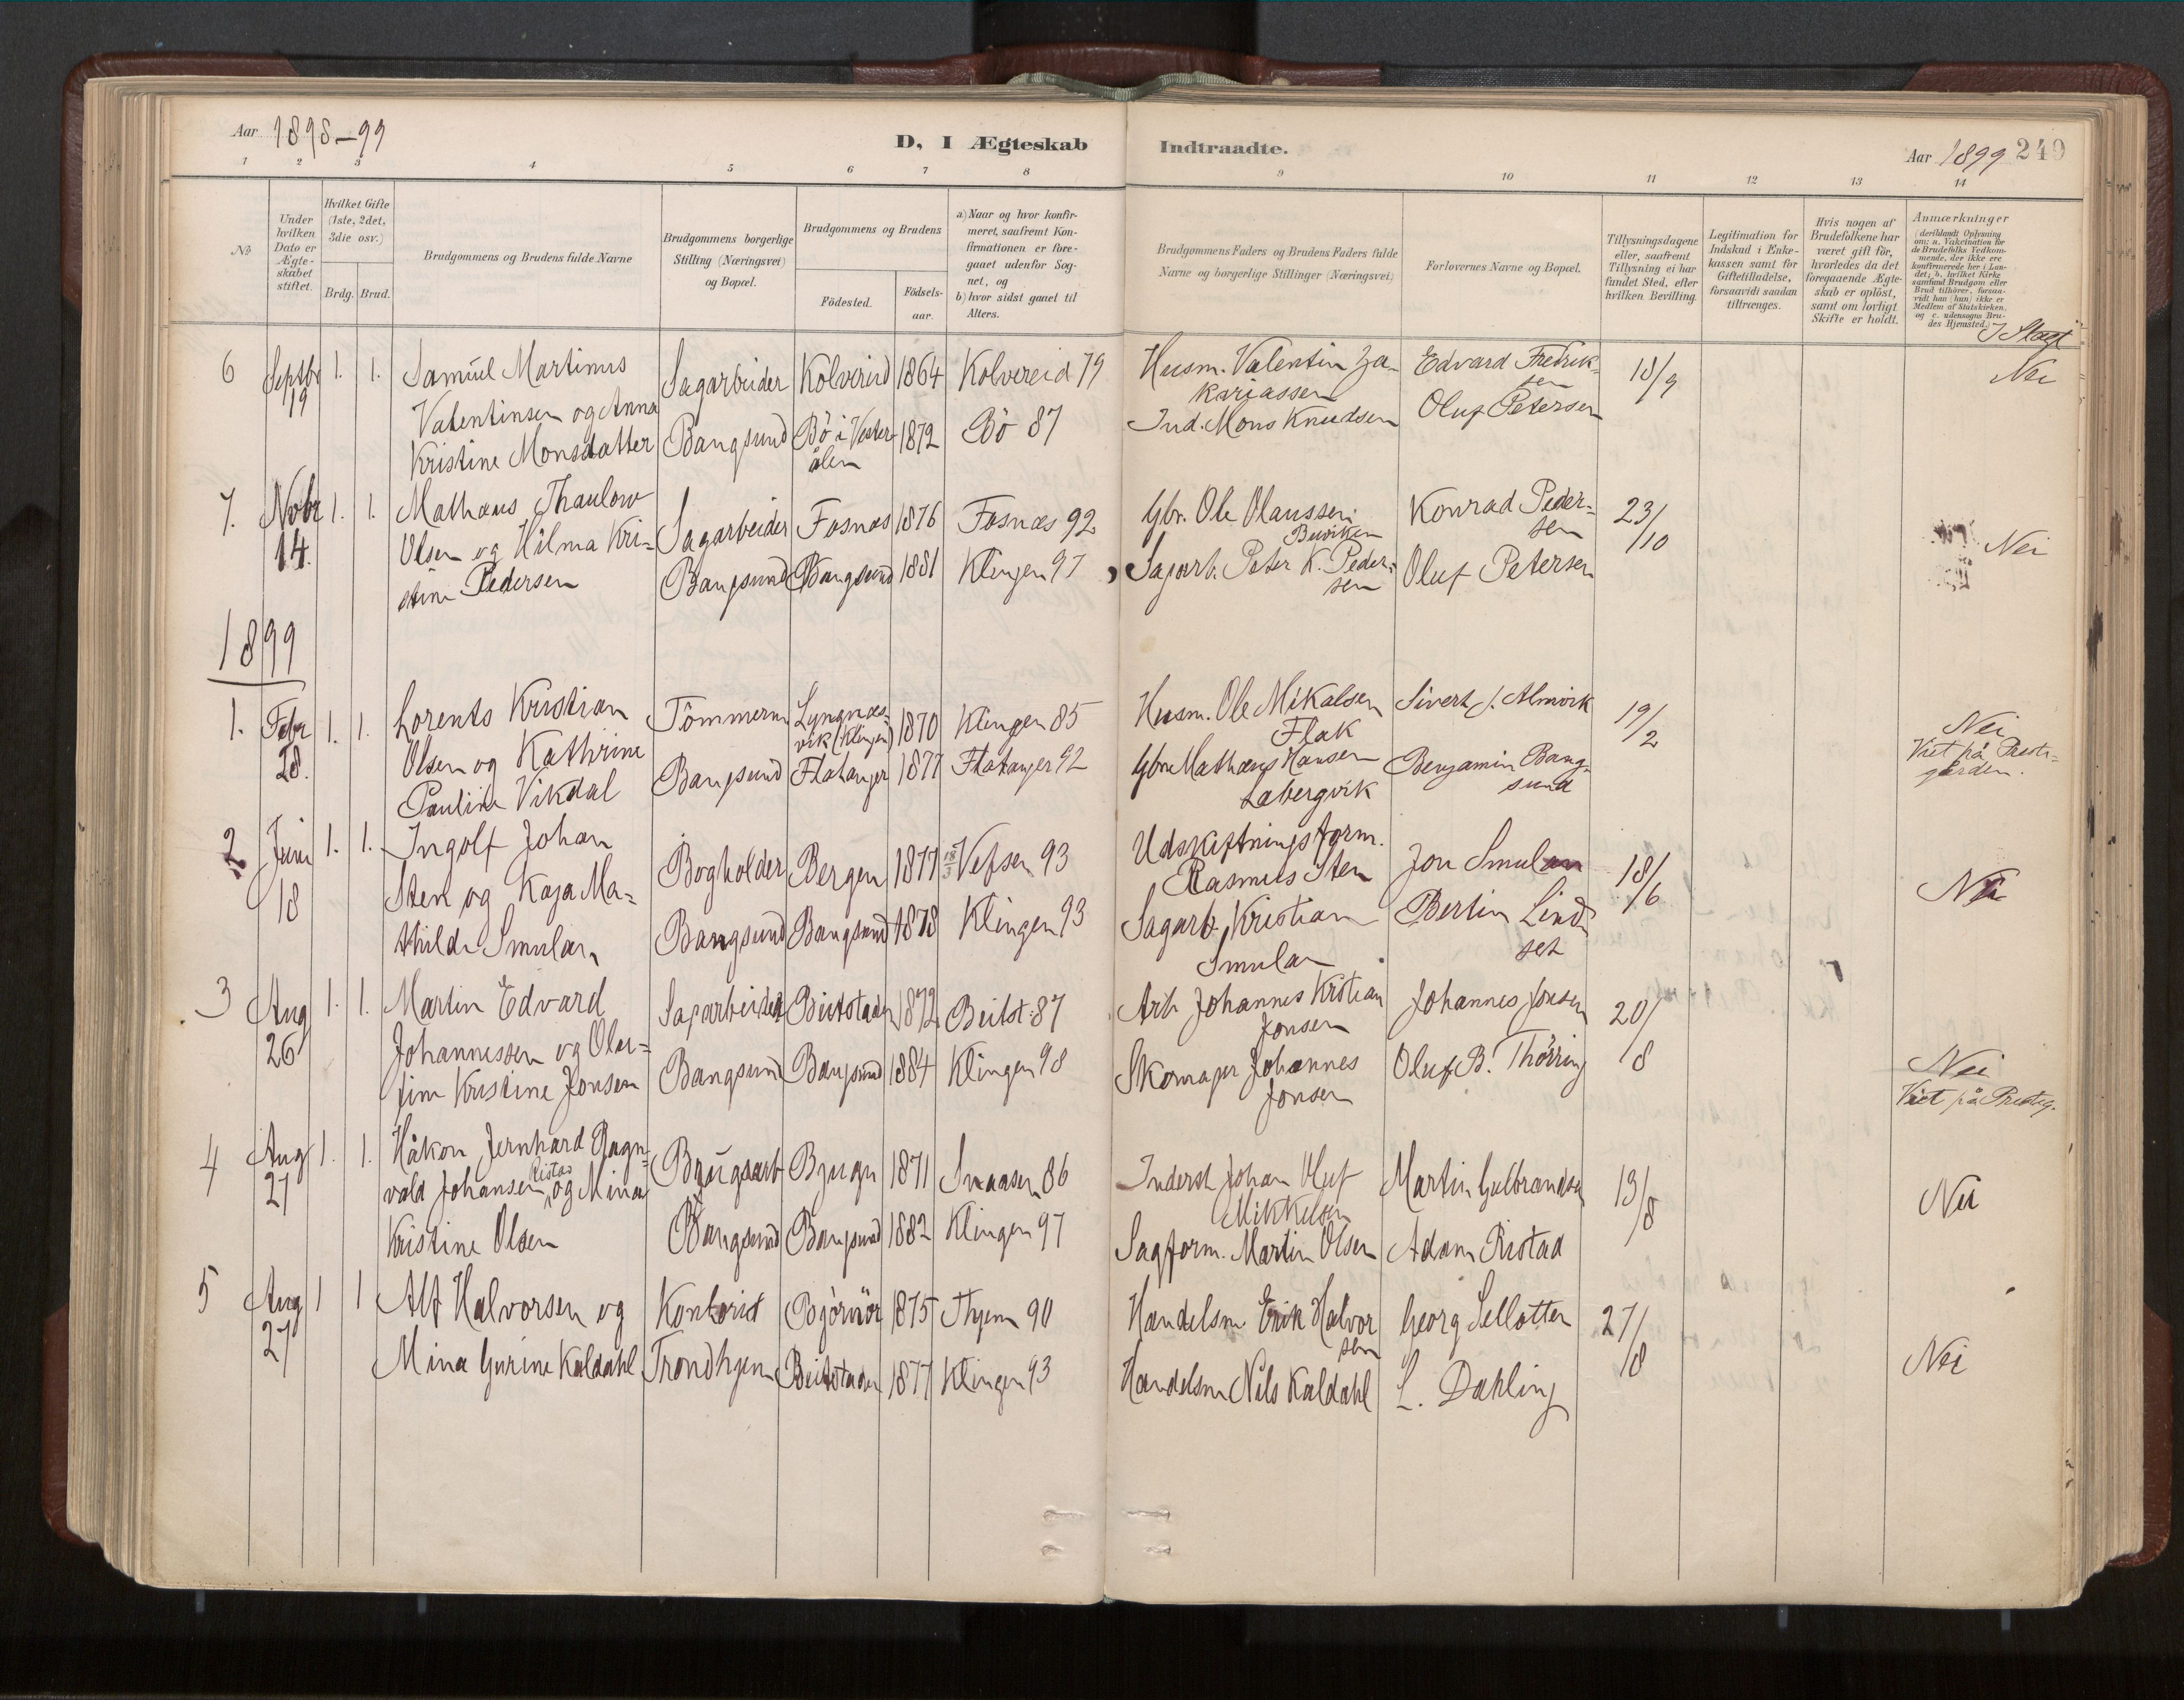 Aar 1898-99
D, I Ægteskab Indtraadte.
Aar 1899 249
1 2 3 4 5 6 7 8 9 10 11 12 13 14
No
Under hvilken Dato er Ægte-skabet stiftet.
Hvilket Gifte (1ste, 2det, 3die osv.)
Brdg. Brud.
Brudgommens og Brudens fulde Navne
Brudgommens borgerlige Stilling (Næringsvei) og Bopæl.
Brudgommens og Brudens
Födested.
Födsels-aar.
a) Naar og hvor konfir-meret, saafremt Kon-firmationen er fore-gaaet udenfor Sog-net, og
b) hvor sidst gaaet til Alters.
Brudgommens Faders og Brudens Faders fulde Navne og borgerlige Stillinger (Næringsvei)
Forlovernes Navne og Bopæl.
Tillysningsdagene eller, saafremt Tillysning ei har fundet Sted, efter hvilken Bevilling.
Legitimation for Indskud i Enke-kassen samt for Giftetilladelse, forsaavidt saadan tiltrænges.
Hvis nogen af Brudefolkene har været gift för, hvorledes da det foregaaende Ægte-skab er oplöst, samt om lovligt Skifte er holdt.
Anmærkninger (deriblandt Oplysning om: a. Vakcination for de Brudefolks Vedkom-mende, der ikke ere konfirmerede her i Lan-det; b. hvilket Kirke-samfund Brudgom eller Brud tilhörer, forsaa-vidt han (hun) ikke er Medlem af Statskirken, og c. udensogns Bru-des Hjemsted.)
I Slægt
6 Septbr 19 1. 1. Samuel Martinus
Valentinsen og Anna
Kristine Monsdatter
Sagarbeider
Bangsund
Kolvereid 1864 Kolvereid 79
Bö i Vester-ålen 1872 Bö 87
Husm. Valentin Za-
kariassen
Ind. Mons Knudsen
Edvard Fredrik-
sen
Oluf Petersen
18/9
Nei
7. Nobr 14. 1. 1. Mathæus Thaulow
Olsen og Hilma Kri-
stine Pedersen
Sagarbeider
Bangsund
Fosnæs 1876 Fosnæs 92
Bangsund 1881 Klingen 97
Gbr. Ole Olaussen
Sagarb. Peter K. Peder-
sen
Konrad Peder-
sen
Oluf Petersen
23/10
Nei
1899
1. Febr 28. 1. 1. Lorents Kristian
Olsen og Kathrine
Pauline Vikdal
Tömmerm
Bangsund
Lyngnæs-
vik (Klingen) 1870 Klingen 85
Flatanger 1877 Flatanger 92
Husm. Ole Mikalsen
Flak
Gbr Mathæus Hansen
Labergvik
Sivert J. Almvik
Benjamin Bang-
sund
19/2
Nei
Viet på Preste-
gården.
2 Juni 18 1. 1. Ingolf Johan
Sten og Kaja Ma-
thilde Smulan
Bogholder
Bangsund
Bergen 1877 Vefsen 93
Bangsund 1878 Klingen 93
Udskiftningsform.
Rasmus Sten
Sagarb. Kristian
Smulan
Jon Smulan
Bertin Lind-
set
18/6
Nei
3 Aug 26 1. 1. Martin Edvard
Johannessen og Olu-
fine Kristine Jonsen
Sagarbeider
Bangsund
Beitstaden 1872 Beitst. 87
Bangsund 1884 Klingen 98
Arb Johannes Kristian
Jonsen
Skomager Johannes
Jonsen
Johannes Jonsen
Oluf B. Thörring
20/8
Nei
Viet på Presteg.
4 Aug 27 1. 1. Håkon Jernhard Ragn-
vald Johansen Ristad og Mina
Kristine Olsen
Brugsarb
Bangsund
Bjugn 1871 Snaasen 86
Bangsund 1882 Klingen 97
Inderst Johan Oluf
Mikkelsen
Sagform. Martin Olsen
Martin Gulbrandsen
Adam Ristad
13/8
Nei
5 Aug 27 1 1 Alf Halvorsen og
Mina Gurine Kaldahl
Kontorist
Trondhjem
Björnör 1875 Thjem 90
Beitstaden 1877 Klingen 93
Handelsm Erik Halvor
sen
Handelsm Nils Kaldahl
Georg Sellotten
L. Dahling
27/8
Nei